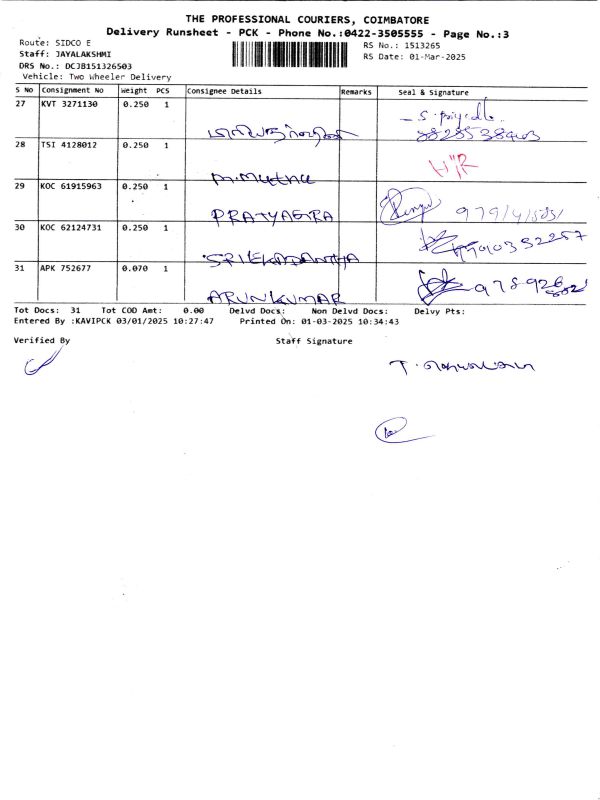 THE PROFESSIONAL COURIERS, COIMBATORE
Delivery Runsheet - PCK - Phone No.:0422-3505555 - Page No.:3
Route: SIDCO E RS No.: 1513265
Staff: JAYALAKSHMI RS Date: 01-Mar-2025
DRS No.: DCJB151326503
Vehicle: Two Wheeler Delivery
S No Consignment No Weight PCS Consignee Details Remarks Seal & Signature
27 KVT 3271130 0.250 1
28 TSI 4128012 0.250 1
M.Muthu
29 KOC 61915963 0.250 1
PRATYAGRA
30 KOC 62124731 0.250 1
SRI EKADANTHA
31 APK 752677 0.070 1
ARUNKUMAR
Tot Docs: 31 Tot COD Amt: 0.00 Delvd Docs: Non Delvd Docs: Delvy Pts:
Entered By :KAVIPCK 03/01/2025 10:27:47 Printed On: 01-03-2025 10:34:43
Verified By Staff Signature